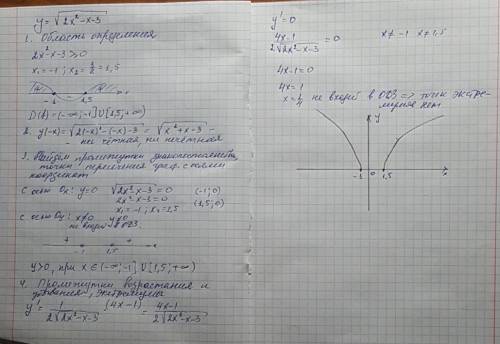 y = √(2x² - x - 3)
1. Область определения
2x² - x - 3 ≥ 0
x₁ = -1; x₂ = 3/2 = 1,5
-1 1,5 x
D(f) = (-∞; -1] U [1,5; +∞)
2. y(-x) = √(2(-x)² - (-x) - 3) = √(2x² + x - 3) -
- ни чётная, ни нечётная
3. Найдём промежутки знакопостоянства,
точки пересечения граф. с осями
координат
С осью Ox: y=0 √(2x² - x - 3) = 0 (-1; 0)
2x² - x - 3 = 0 (1,5; 0)
x₁ = -1; x₂ = 1,5
С осью Oy: x≠0 y≠0
не входит в ОДЗ.
+ + -1 1,5 x
y>0, при x ∈ (-∞; -1] U [1,5; +∞)
4. Промежутки возрастания и
убывания, экстремумы
y' = 1/(2√(2x² - x - 3)) · (4x - 1) = (4x - 1)/(2√(2x² - x - 3))
y' = 0
(4x - 1)/(2√(2x² - x - 3)) = 0 x ≠ -1 x ≠ 1,5
4x - 1 = 0
4x = 1
x = 1/4 не входит в ОДЗ => точек экстре-
мумов нет
y
-1 0 1,5 x